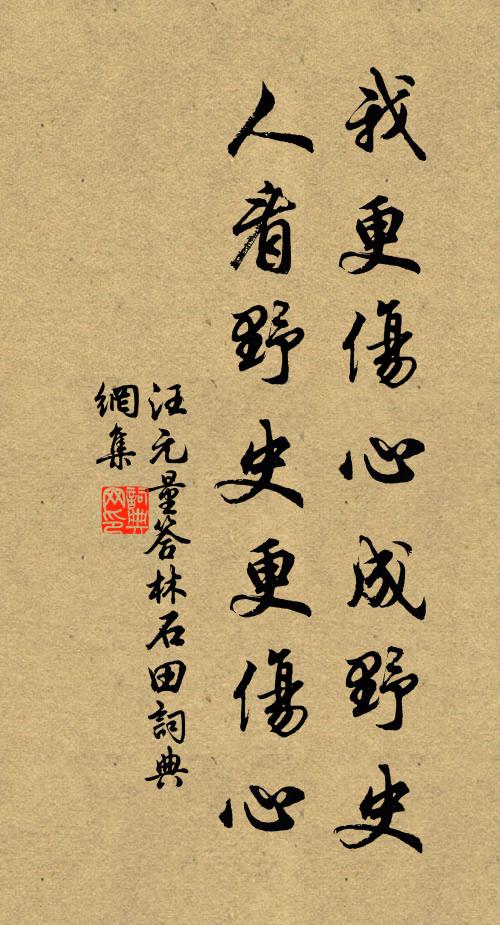 我更傷心成野史
人看野史更傷心
汪元量答林石田詞典
網集
詞典網印